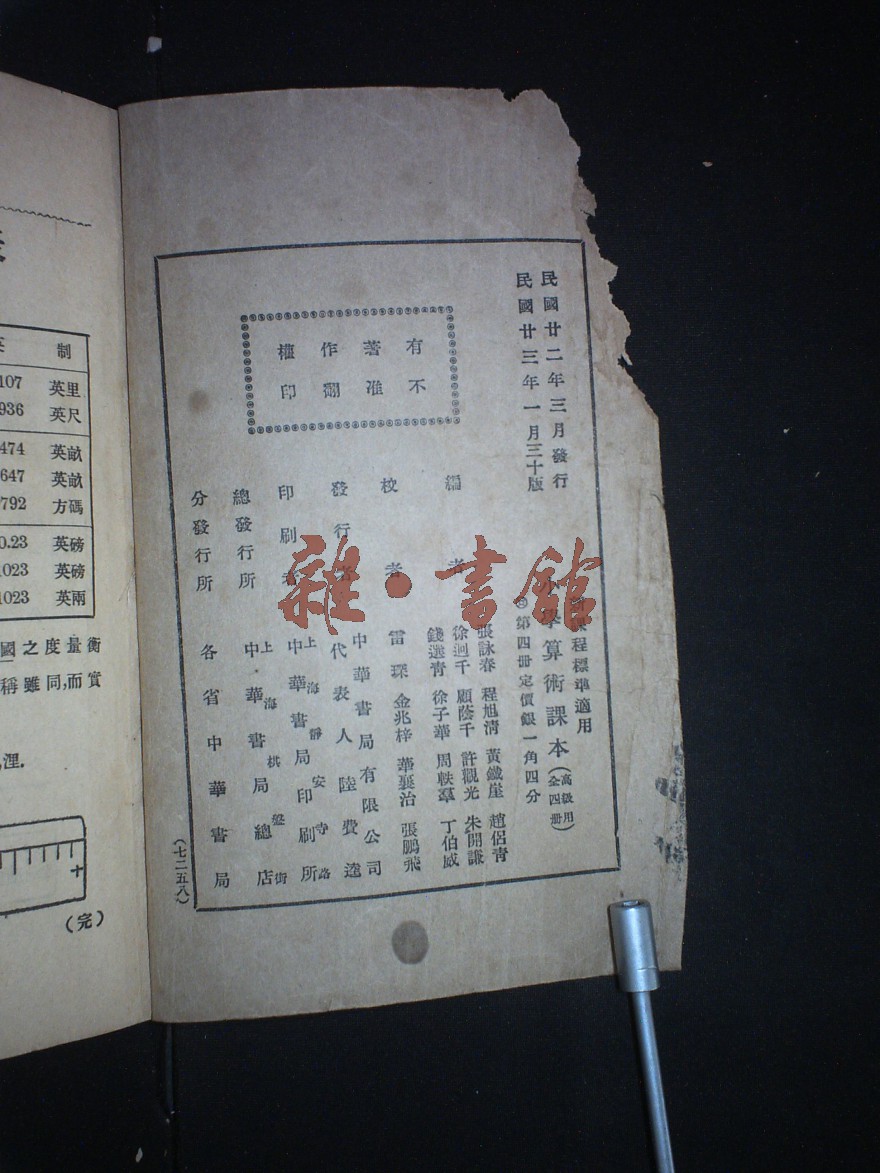 民國廿二年三月發行
民國廿三年一月三十版
有著作權
不准翻印
新課程標準適用
小學算術課本(高級用全四冊)
第四冊定價銀一角四分
編者
張詠春 程旭清 黃鐵崖 趙侶青
徐迥千 顧蔭千 許觀光 朱開謙
錢選青 徐子華 周軼羣 丁伯威
校者
雷琛 金兆梓 華襄治 張鵬飛
發行者
中華書局有限公司
代表人陸費逵
印刷者
上海靜安寺路
中華書局印刷所
總發行所
上海棋盤街
中華書局總店
分發行所
各省中華書局
(七二五八)
雜·書館
制
107 英里
936 英尺
474 英畝
647 英畝
792 方碼
0.23 英磅
1023 英磅
1023 英兩
國之度量衡
稱雖同,而實
浬.
(完)